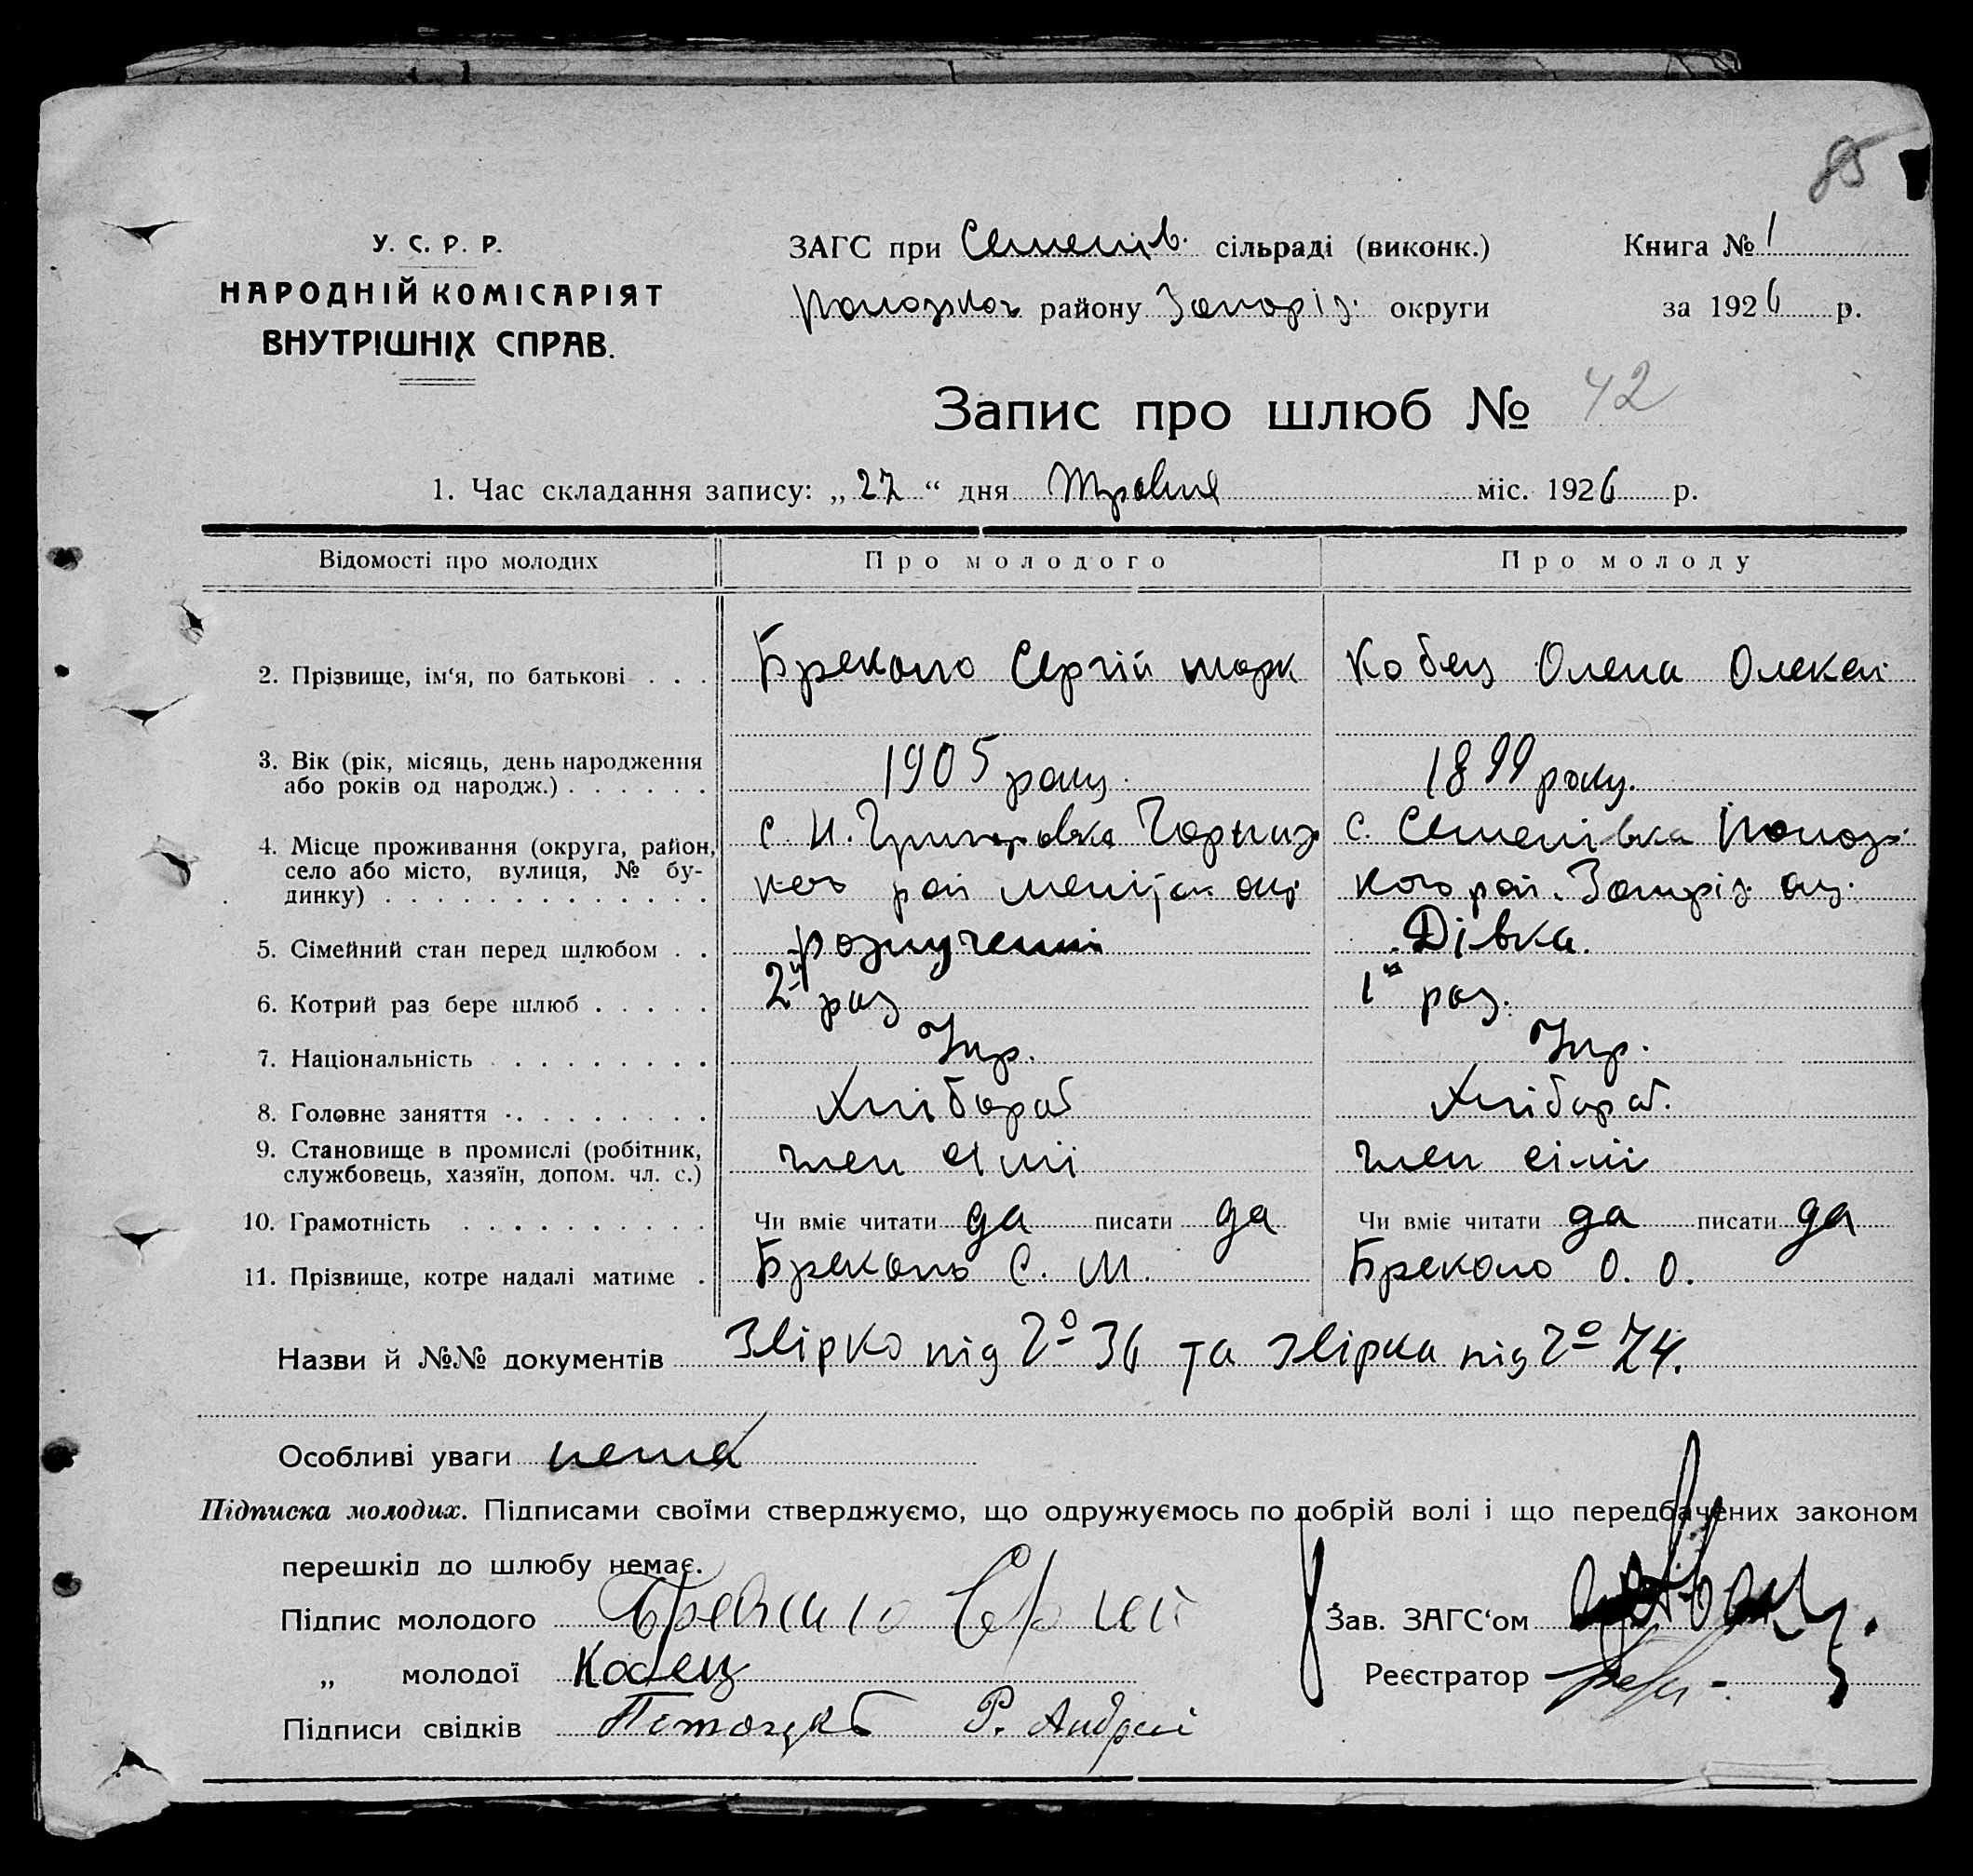 85
У. С. Р. Р.
НАРОДНІЙ КОМІСАРІЯТ
ВНУТРІШНІХ СПРАВ.
ЗАГС при Семенів. сільраді (виконк.)
району Запоріз. округи
Книга № 1
за 1926 р.
Запис про шлюб № 42
1. Час складання запису: „ 27 “ дня Травня міс. 1926 р.
Відомості про молодих Про молодого Про молоду
2. Прізвище, ім‘я, по батькові . . . Брекало Сергій марк Кобец Олена Олексі
3. Вік (рік, місяць, день народження
або років од народж.) . . . . . . 1905 року. 1899 року.
4. Місце проживання (округа, район, с. Н. Григоровка с. Семенівка Полоз-
село або місто, вулиця, № бу-
динку) . . . . . . . . . . . . . рай кого рай. Запоріз. ок.
5. Сімейний стан перед шлюбом . . розлучений Дівка.
6. Котрий раз бере шлюб . . . . . 2й раз 1й раз.
7. Національність . . . . . . . . Укр. Укр.
8. Головне заняття . . . . . . . . Хлібороб Хлібороб.
9. Становище в промислі (робітник,
службовець, хазяїн, допом. чл. с.) член сімі член сімі
10. Грамотність . . . . . . . . . . Чи вміє читати да писати да Чи вміє читати да писати да
11. Прізвище, котре надалі матиме . Брекало С. М. Брекало О. О.
Назви й №№ документів Звірка під № 36 та звірка під № 74.
Особливі уваги нема
Підписка молодих. Підписами своїми стверджуємо, що одружуємось по добрій волі і що передбачених законом
перешкід до шлюбу немає.
Підпис молодого Брекало Сергій
„ молодої Кобец
Підписи свідків Р. Андрей
Зав. ЗАГС‘ом
Реєстратор